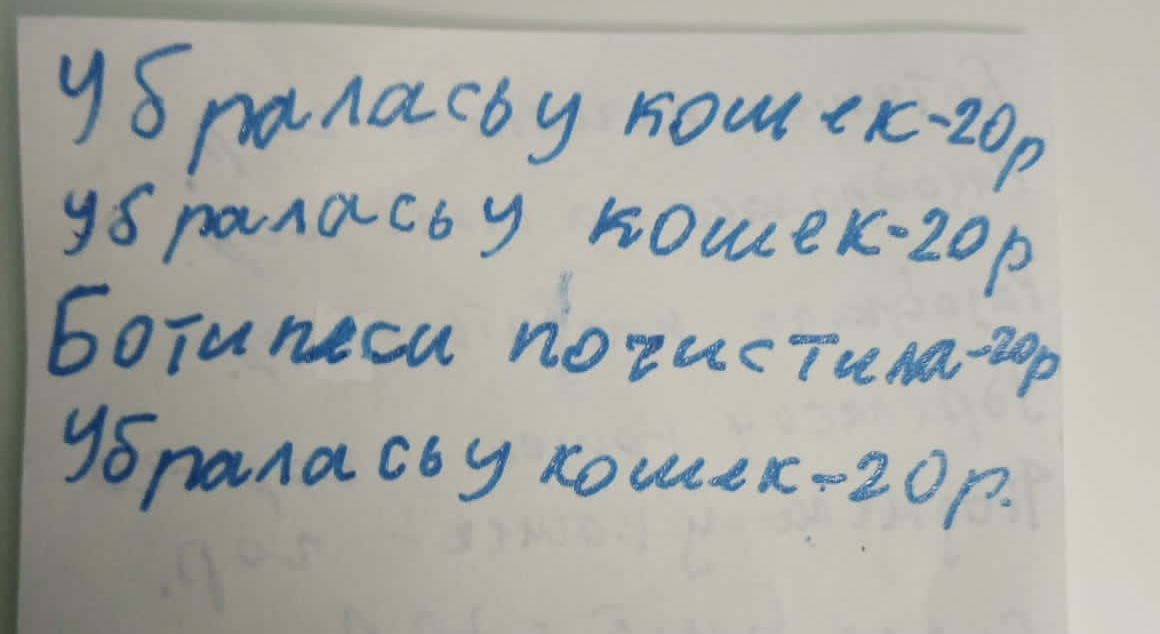 Убралась у кошек-20р
Убралась у кошек-20р
Ботипеси почистила-20р
Убралась у кошек-20р.